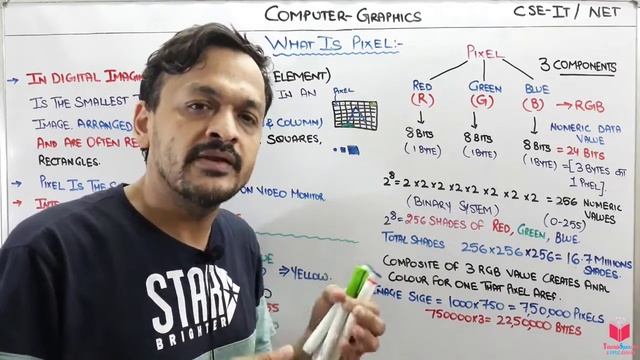 COMPUTER-GRAPHICS
CSE-IT / NET
WHAT IS PIXEL:-
→ IN DIGITAL IMAGIN
ELEMENT)
IS THE SMALLEST
IN AN
IMAGE. ARRANGED
& COLUMN)
AND ARE OFTEN RE
SQUARES,
RECTANGLES.
PIXEL
→ PIXEL IS THE S
ON VIDEO MONITOR
→ INT
⇒ YELLOW.
PIXEL
3 COMPONENTS
RED GREEN BLUE
(R) (G) (B) → RGB
8 BITS 8 BITS 8 BITS = 24 BITS
NUMERIC DATA VALUE
(1 BYTE) (1 BYTE) (1 BYTE) = [3 BYTES
1 PIXEL].
2^8 = 2 × 2 × 2 × 2 × 2 × 2 × 2 × 2 = 256 NUMERIC VALUES
(BINARY SYSTEM) (0-255)
2^8 = 256 SHADES OF RED, GREEN, BLUE.
TOTAL SHADES 256×256×256 = 16.7 MILLIONS SHADES.
COMPOSITE OF 3 RGB VALUE CREATES
COLOUR FOR ONE THAT PIXEL
IMAGE SIGE = 1000×750 = 7,50,000 PIXELS
750000×3 = 22,50,000 BYTES
STARK
BRIGHTER